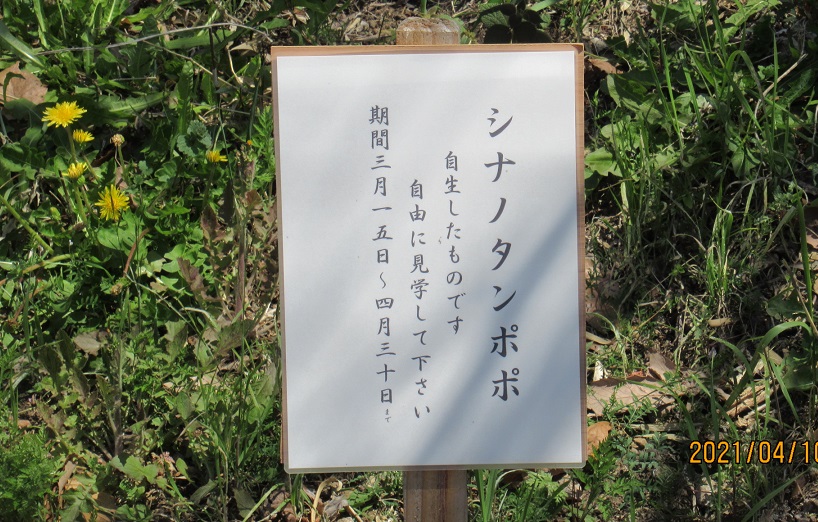 シナノタンポポ
自生したものです
自由に見学して下さい
期間三月一五日~四月三十日まで
2021/04/10